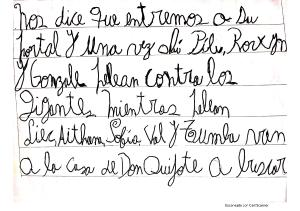 Nos dice que entremos a su
portal Y una vez ahí Pilo, Rox Ym
Y Gonzalo pelean contra los
gigantes, mientras pelean
Liec, Aitham, Sofia, Val Y Zumba van
a la casa de Don Quijote a buscar
Escaneado con CamScanner